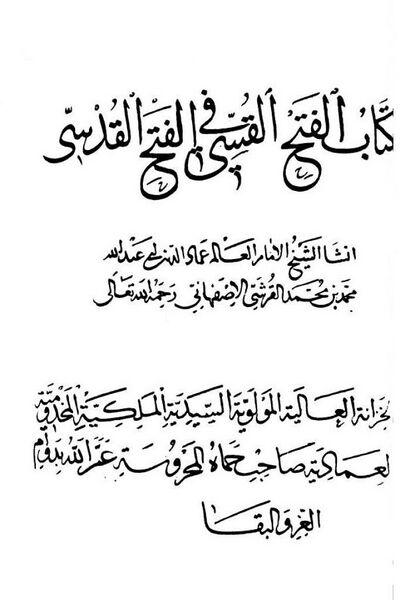 كتاب الفتح القسي في الفتح القدسي
انشا الشيخ الامام العالم عماد الدين ابي عبد الله
محمد بن محمد القرشي الاصفهاني رحمه الله تعالى
لخزانة العالية المولوية السيدية الملكية المخدومية
لعمادية صاحب حماه المحروسة عمر الله بدوام
العز والبقا